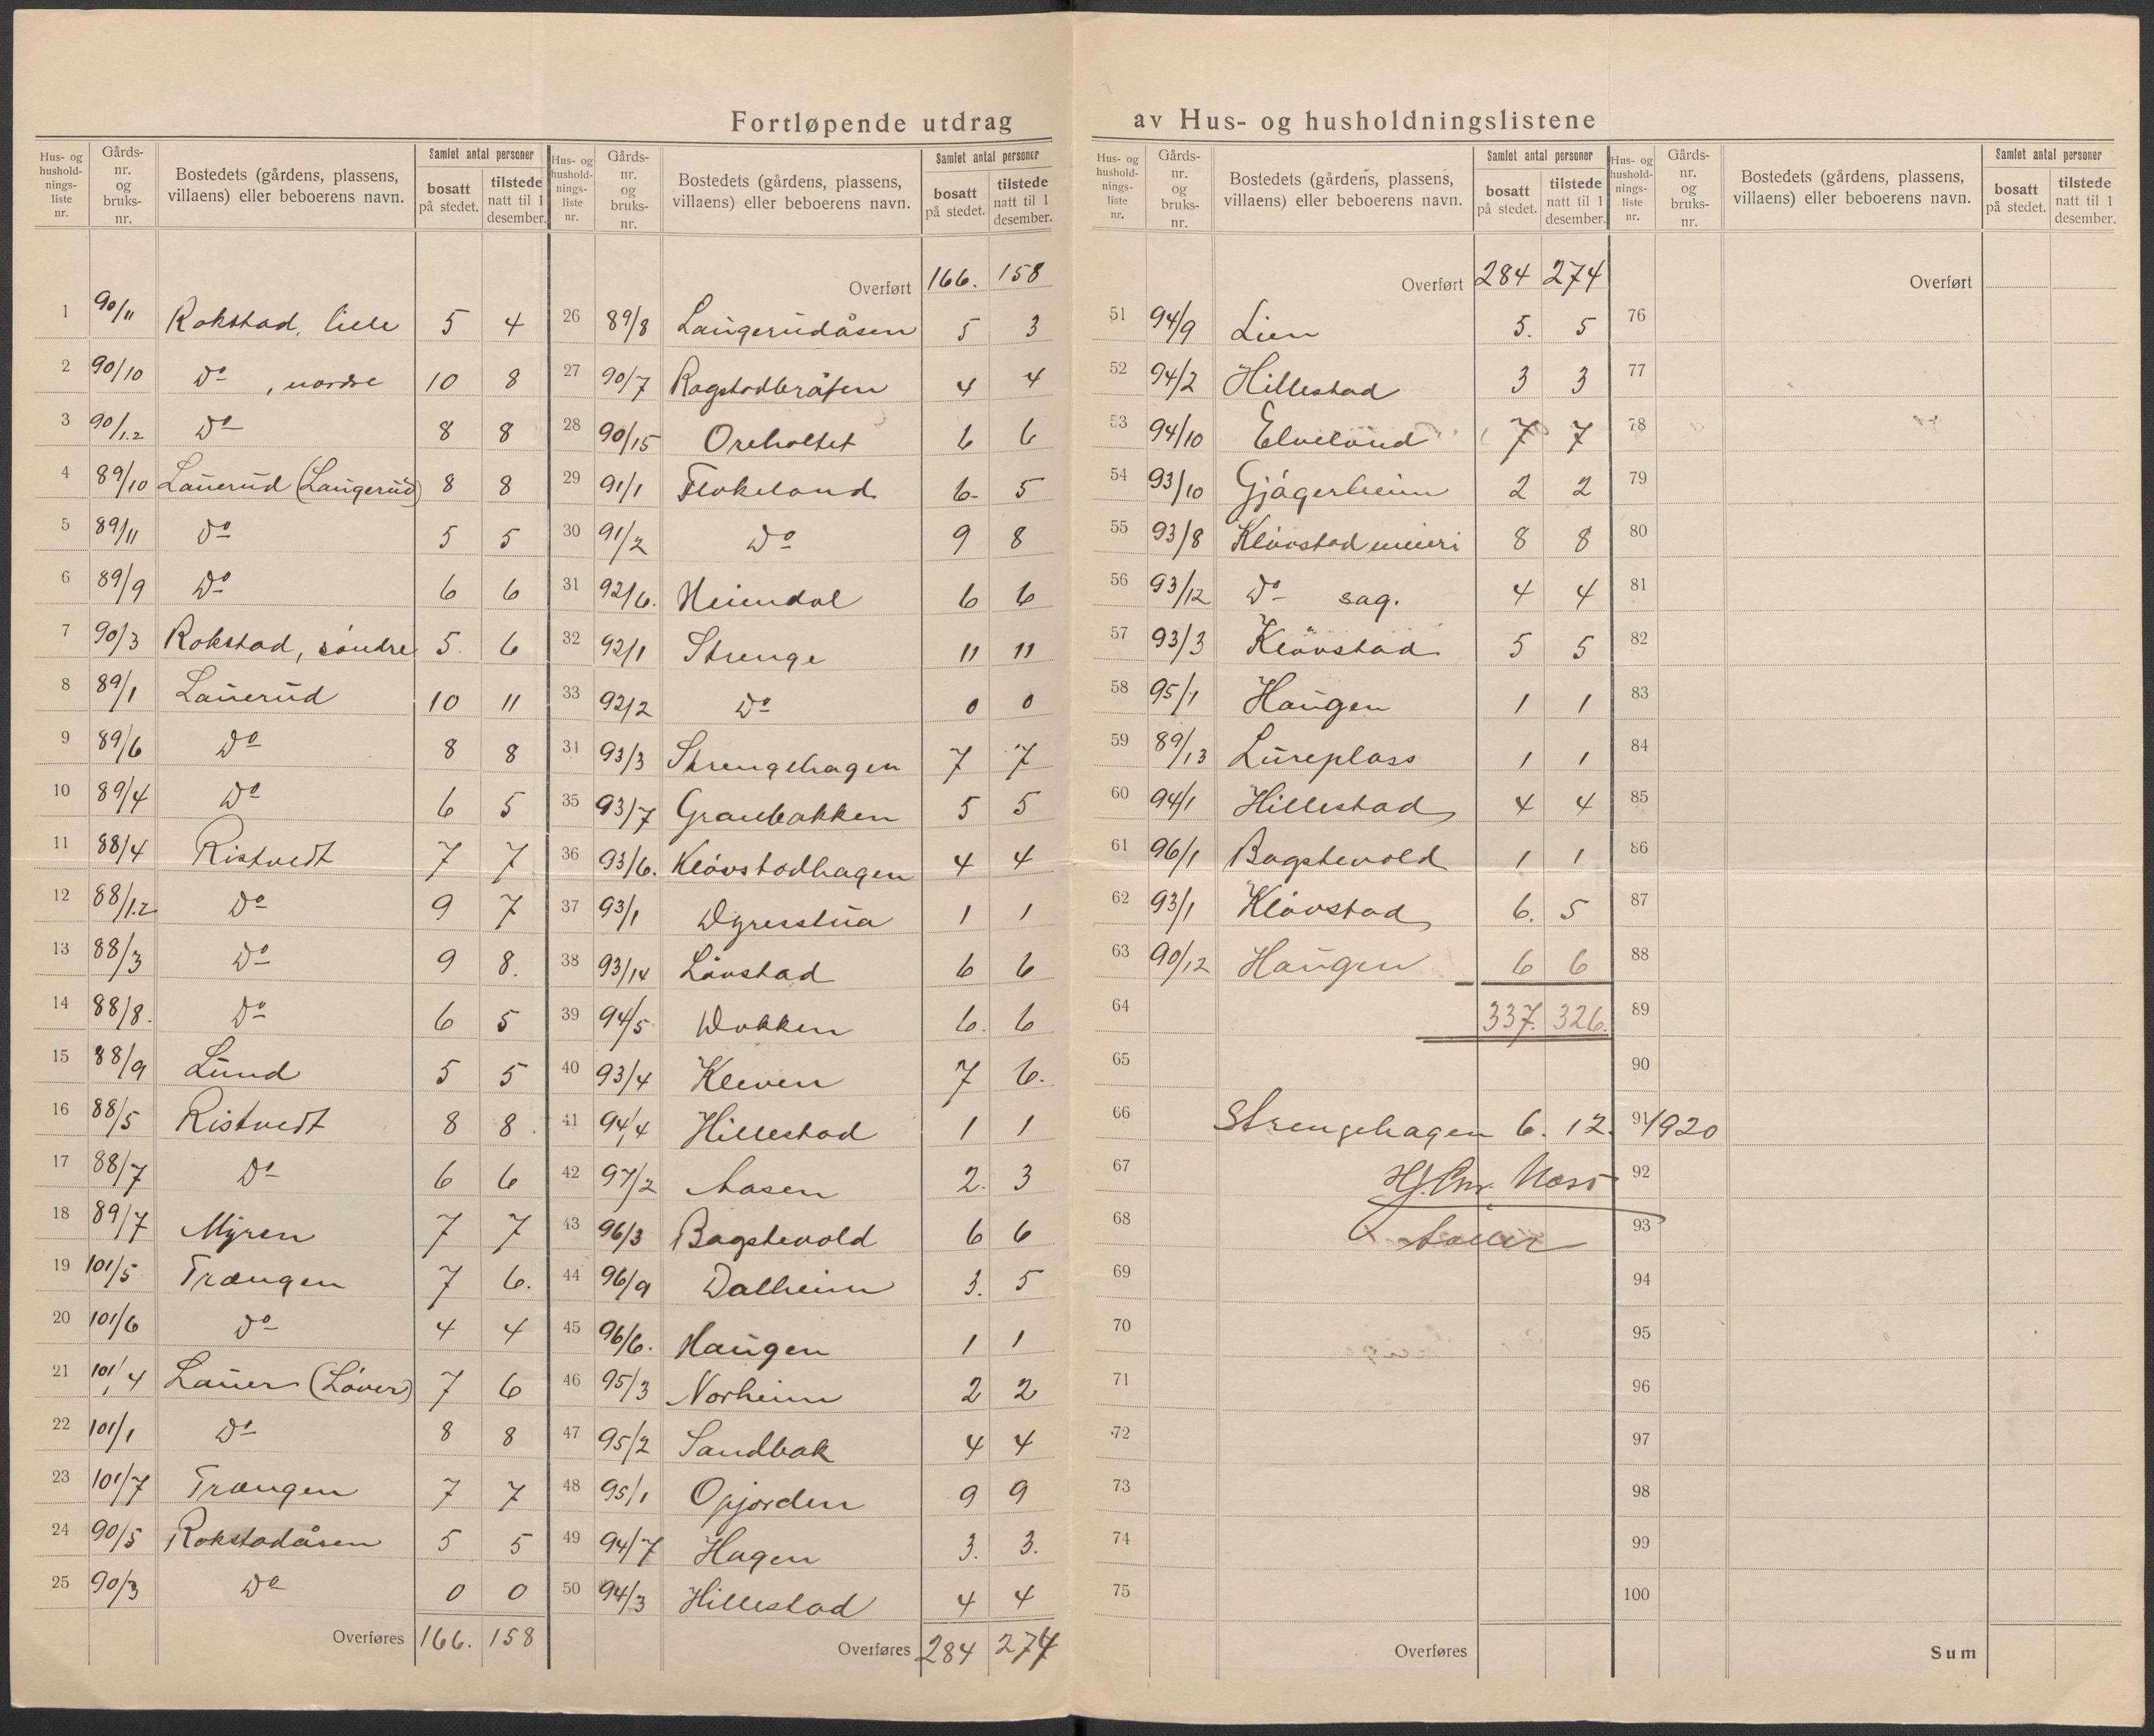 Fortløpende utdrag av Hus- og husholdningslistene
Hus- og hushold-nings-liste nr. Gårds-nr. og bruks-nr. Bostedets (gårdens, plassens, villaens) eller beboerens navn. Samlet antal personer bosatt på stedet. tilstede natt til 1 desember.
1 90/11 Rokstad, lille 5 4
2 90/10 Do , nordre 10 8
3 90/1.2 Do 8 8
4 89/10 Lauerud (Laugerud) 8 8
5 89/11 Do 5 5
6 89/9 Do 6 6
7 90/3 Rokstad, søndre 5 6
8 89/1 Lauerud 10 11
9 89/6 Do 8 8
10 89/4 Do 6 5
11 88/4 Ristvedt 7 7
12 88/1.2 Do 9 7
13 88/3 Do 9 8.
14 88/8. Do 6 5
15 88/9 Lund 5 5
16 88/5 Ristvedt 8 8
17 88/7 Do 6 6
18 89/7 Myren 7 7
19 101/5 Trængen 7 6.
20 101/6 Do 4 4
21 101/4 Lauer (Løver) 7 6
22 101/1 Do 8 8
23 101/7 Trængen 7 7
24 90/5 Rokstadåsen 5 5
25 90/3 Do 0 0
Overføres 166. 158
Hus- og hushold-nings-liste nr. Gårds-nr. og bruks-nr. Bostedets (gårdens, plassens, villaens) eller beboerens navn. Samlet antal personer bosatt på stedet. tilstede natt til 1 desember.
Overført 166. 158
26 89/8 Laugerudåsen 5 3
27 90/7 Rogstadbråten 4 4
28 90/15 Oreholtet 6 6
29 91/1 Flokeland 6. 5
30 91/2 Do 9 8
31 92/6. Heimdal 6 6
32 92/1 Strenge 11 11
33 92/2 Do 0 0
34 93/3 Strengehagen 7 7
35 93/7 Granbakken 5 5
36 93/6. Kløvstadhagen 4 4
37 93/1 Dyresstua 1 1
38 93/14 Løvstad 6 6
39 94/5 Dokken 6. 6
40 93/4 Kleven 7 6.
41 94/4 Hillestad 1 1
42 97/2 Aasen 2. 3
43 96/3 Bagstevold 6 6
44 96/9 Dalheim 3. 5
45 96/6. Haugen 1 1
46 95/3 Norheim 2 2
47 95/2 Sandbak 4 4
48 95/1 Opjorden 9 9
49 94/7 Hagen 3. 3.
50 94/3 Hillestad 4 4
Overføres 284 274
Hus- og hushold-nings-liste nr. Gårds-nr. og bruks-nr. Bostedets (gårdens, plassens, villaens) eller beboerens navn. Samlet antal personer bosatt på stedet. tilstede natt til 1 desember.
Overført 284 274
51 94/9 Lien 5. 5
52 94/2 Hillestad 3 3
53 94/10 Elvelund 7 7
54 93/10 Gjågerheim 2 2
55 93/8 Kløvstad meieri 8 8
56 93/12 Do sag. 4 4
57 93/3 Kløvstad 5 5
58 95/1 Haugen 1 1
59 89/13 Lureplass 1 1
60 94/1 Hillestad 4 4
61 96/1 Bagstevold 1 1
62 93/1 Kløvstad 6. 5
63 90/12 Haugen 6 6
64 337. 326.
65
66 Strengehagen 6. 12. 1920
67 Moss
68
69
70
71
72
73
74
75
Overføres
Hus- og hushold-nings-liste nr. Gårds-nr. og bruks-nr. Bostedets (gårdens, plassens, villaens) eller beboerens navn. Samlet antal personer bosatt på stedet. tilstede natt til 1 desember.
Overført
76
77
78
79
80
81
82
83
84
85
86
87
88
89
90
91
92
93
94
95
96
97
98
99
100
Sum